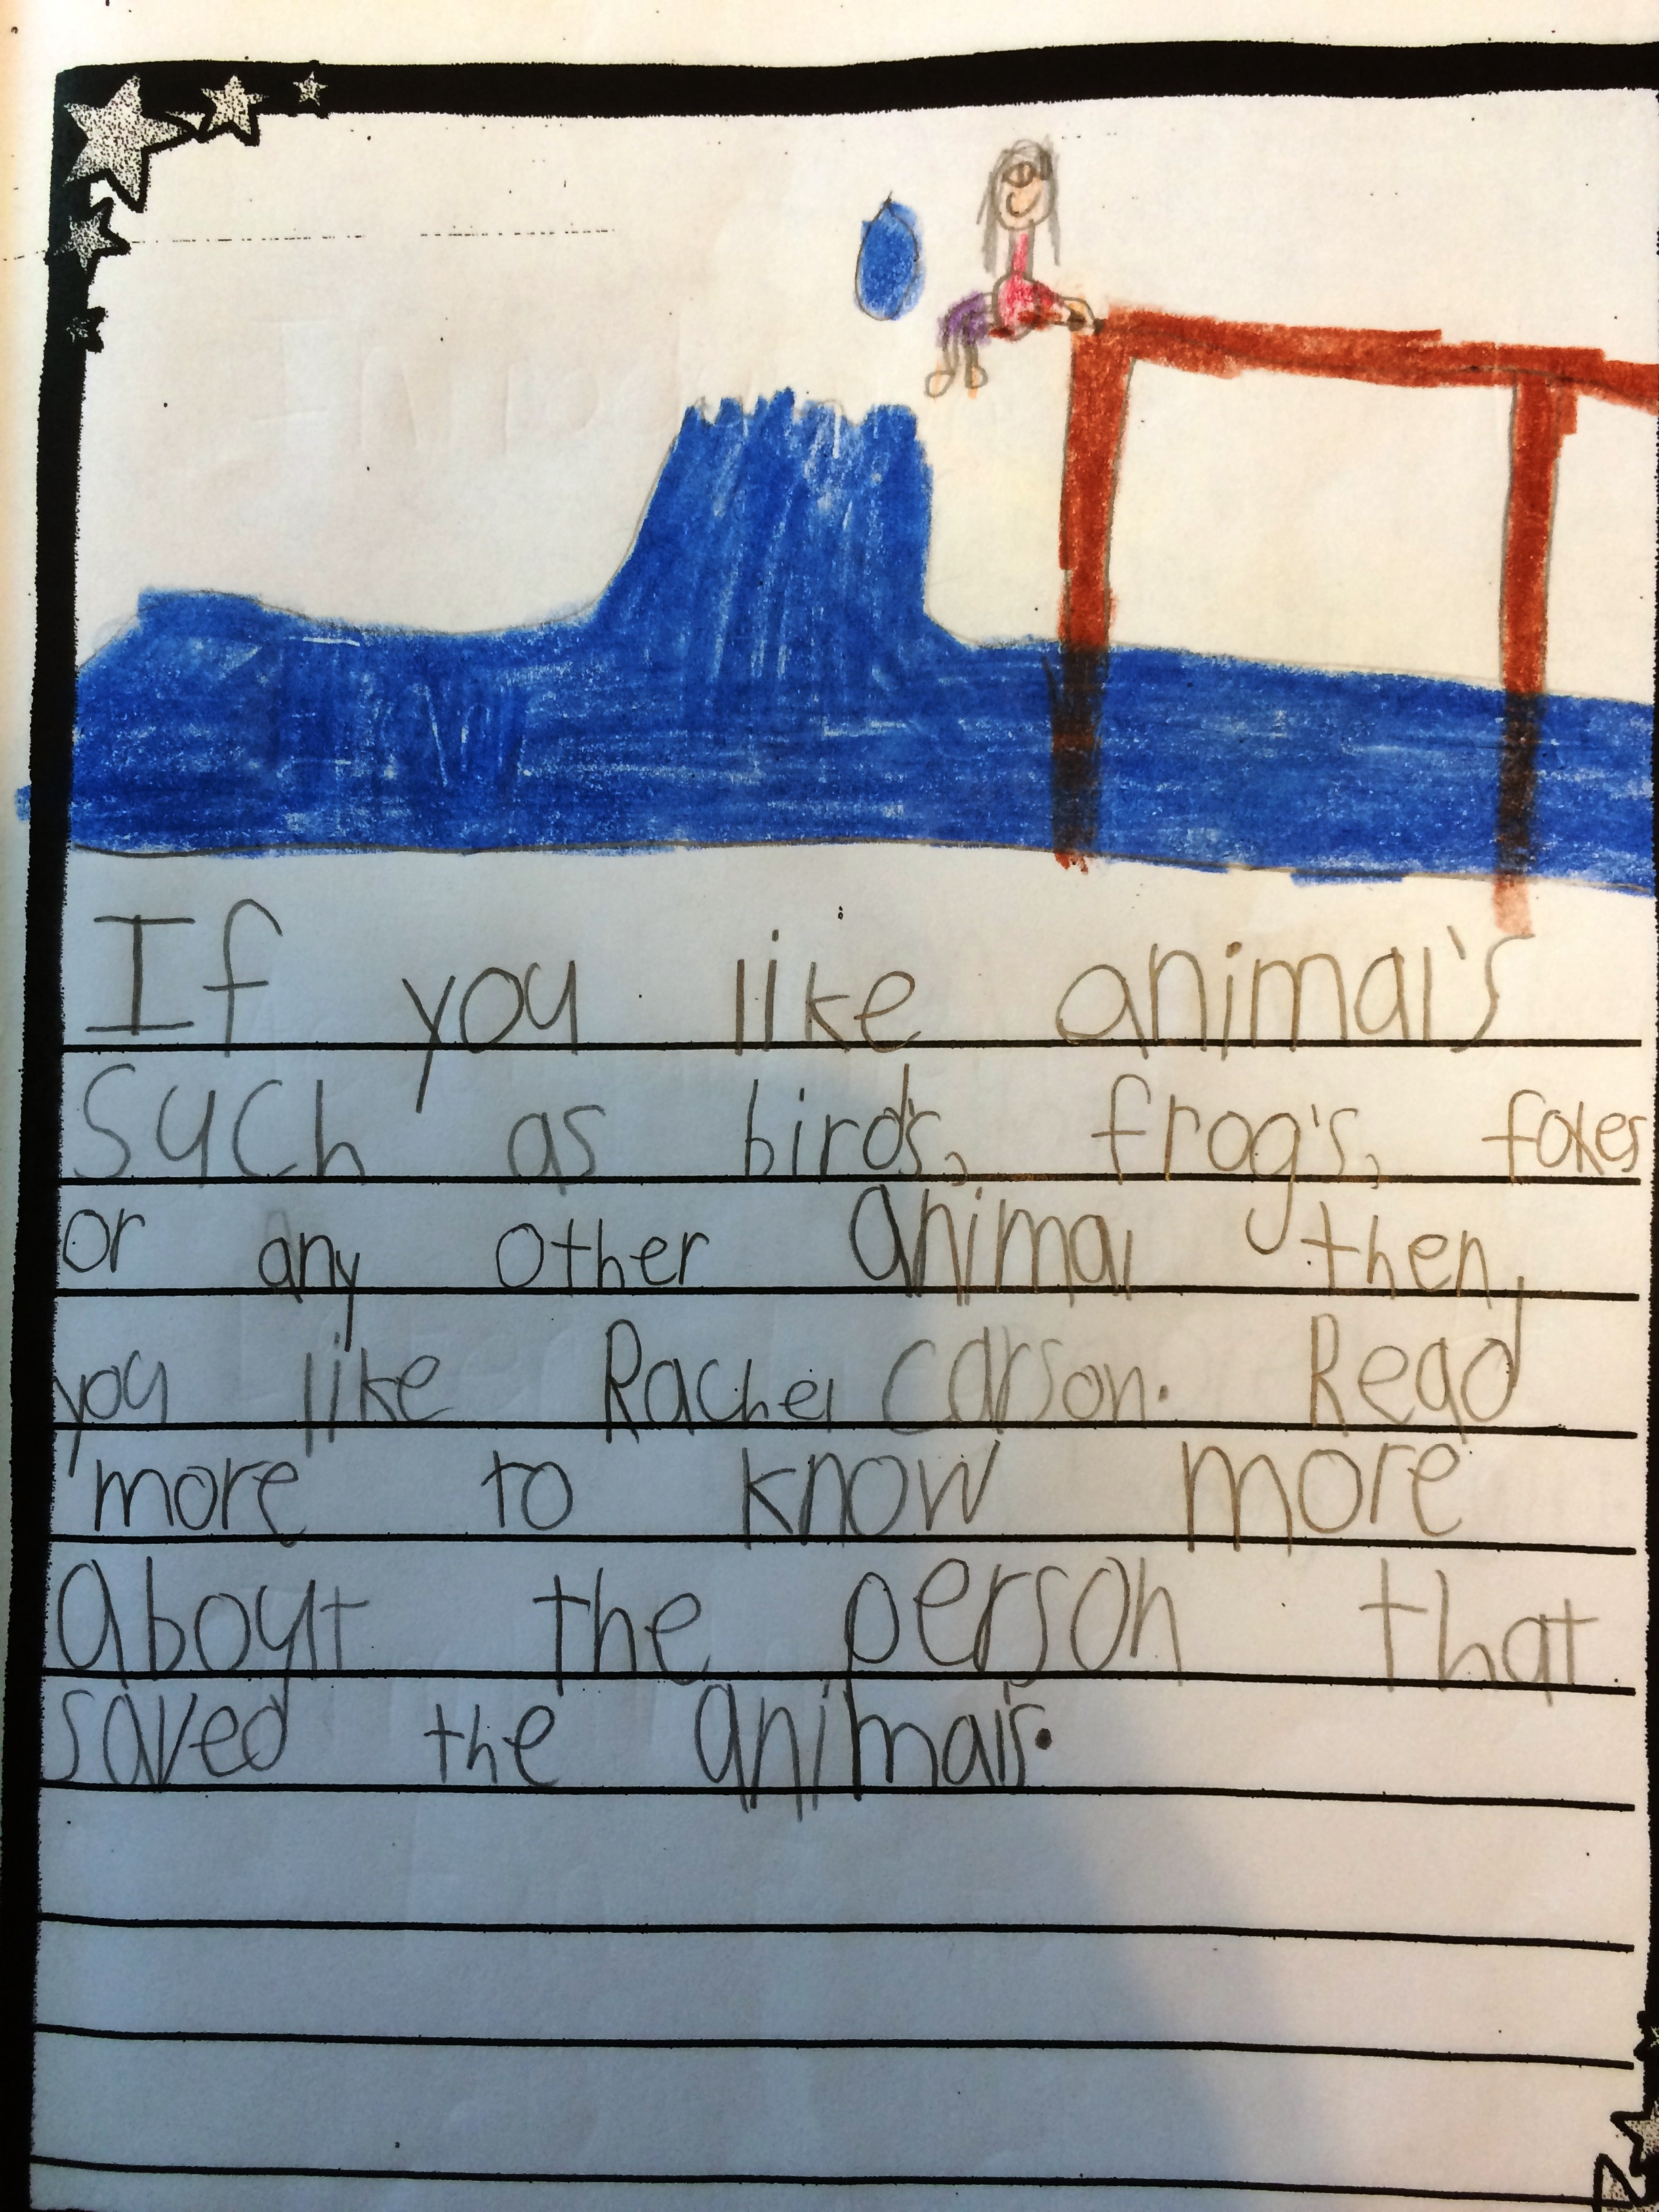 If you like animal's
such as bird's, frog's, foxes
or any other animal then,
you like Rachel Carson. Read
more to know more
about the person that
saved the animal's.